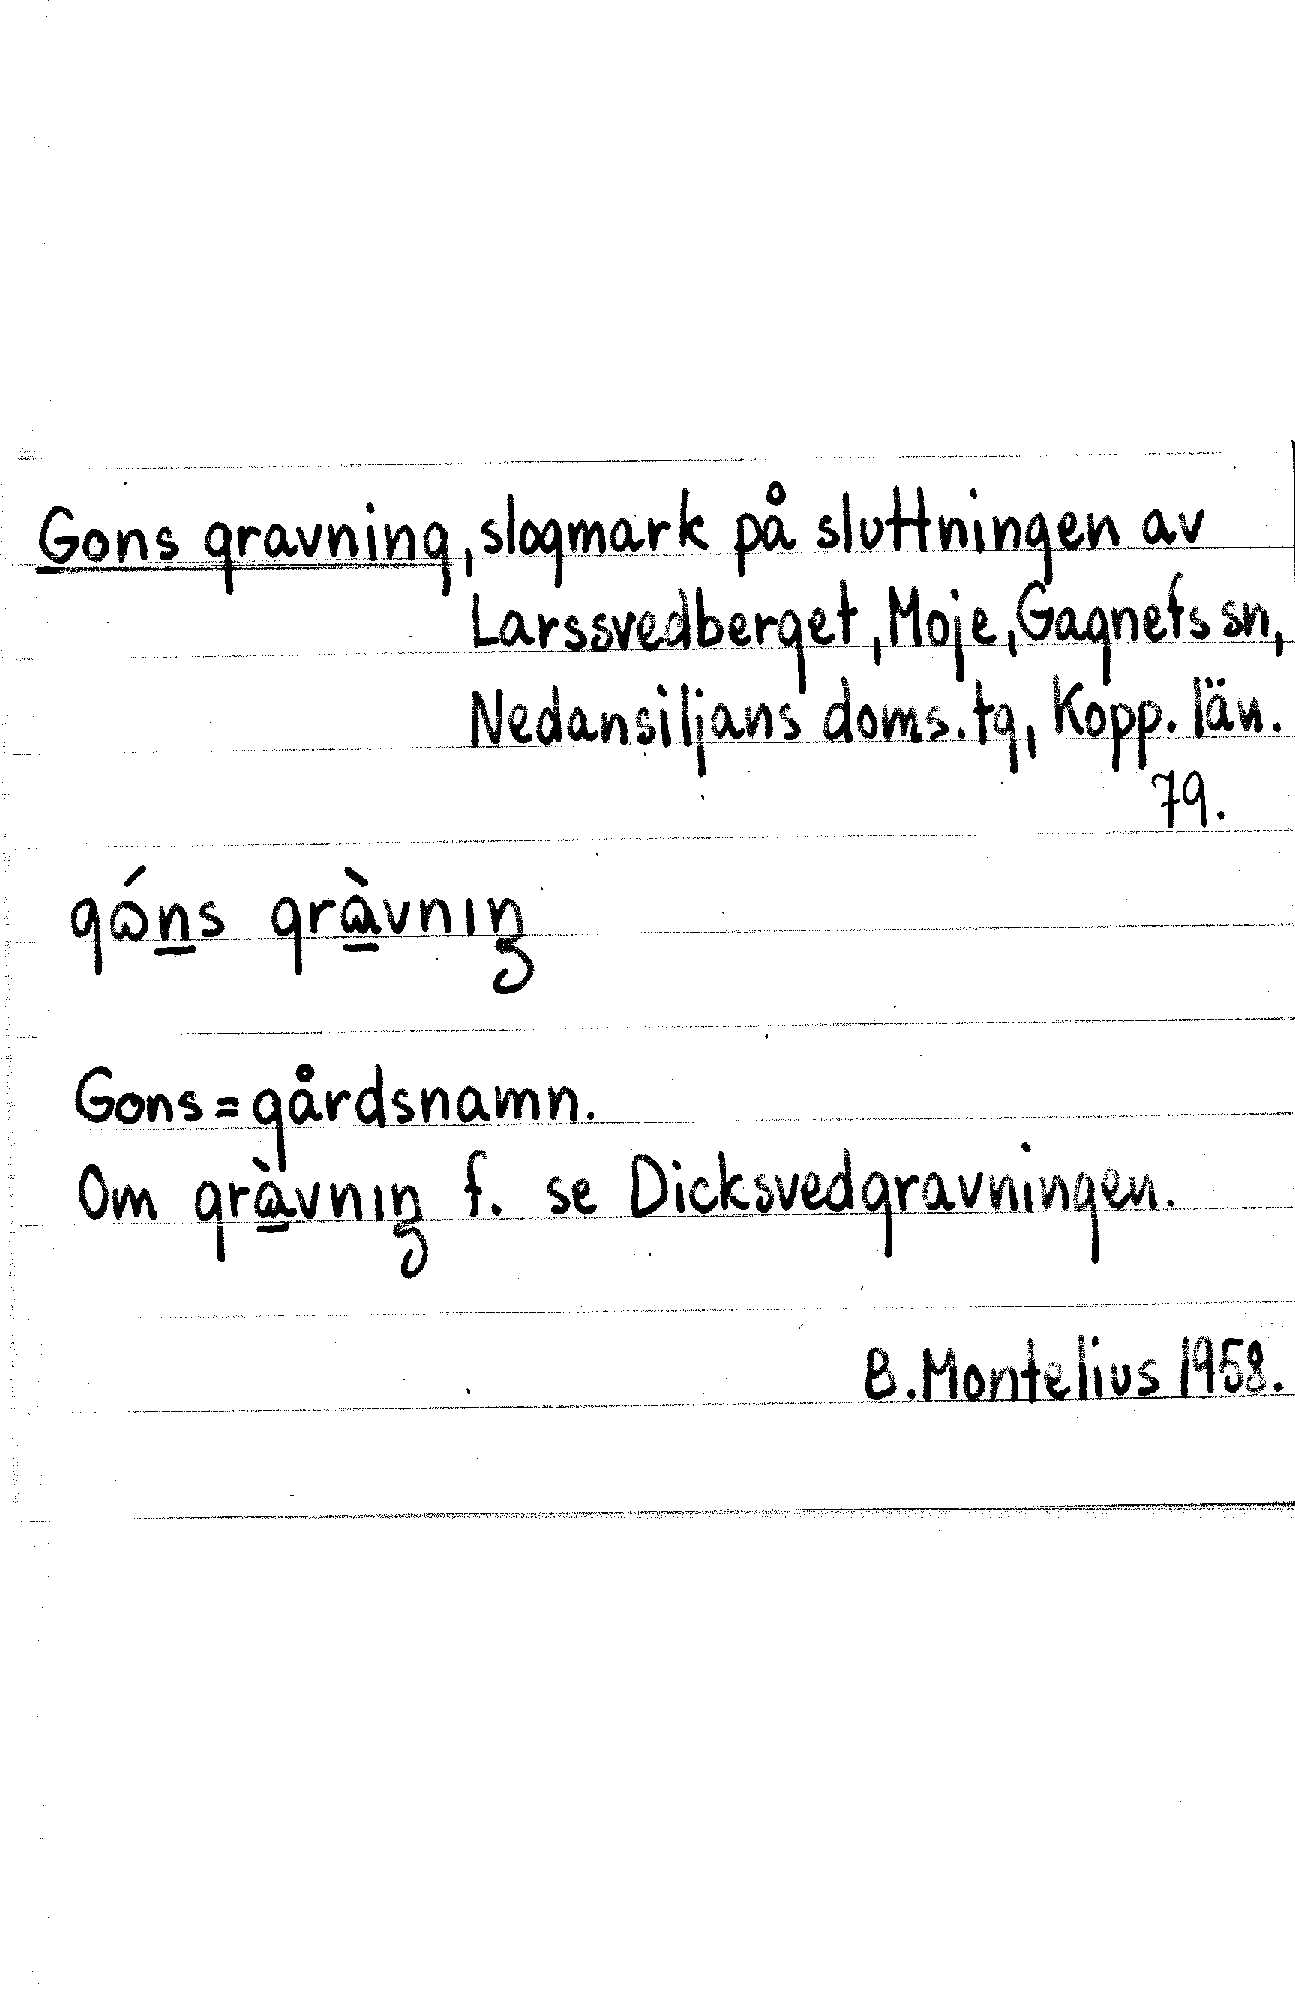 Gons gravning, slogmark på sluttningen av
Larssvedberget, Moje, Gagnefs sn,
Nedansiljans doms. tg, Kopp. län.
79.
gɷ́n̲s grà̲vnıŋ
Gons = gårdsnamn.
Om grà̲vnıŋ f. se Dicksvedgravningen.
B. Montelius 1958.